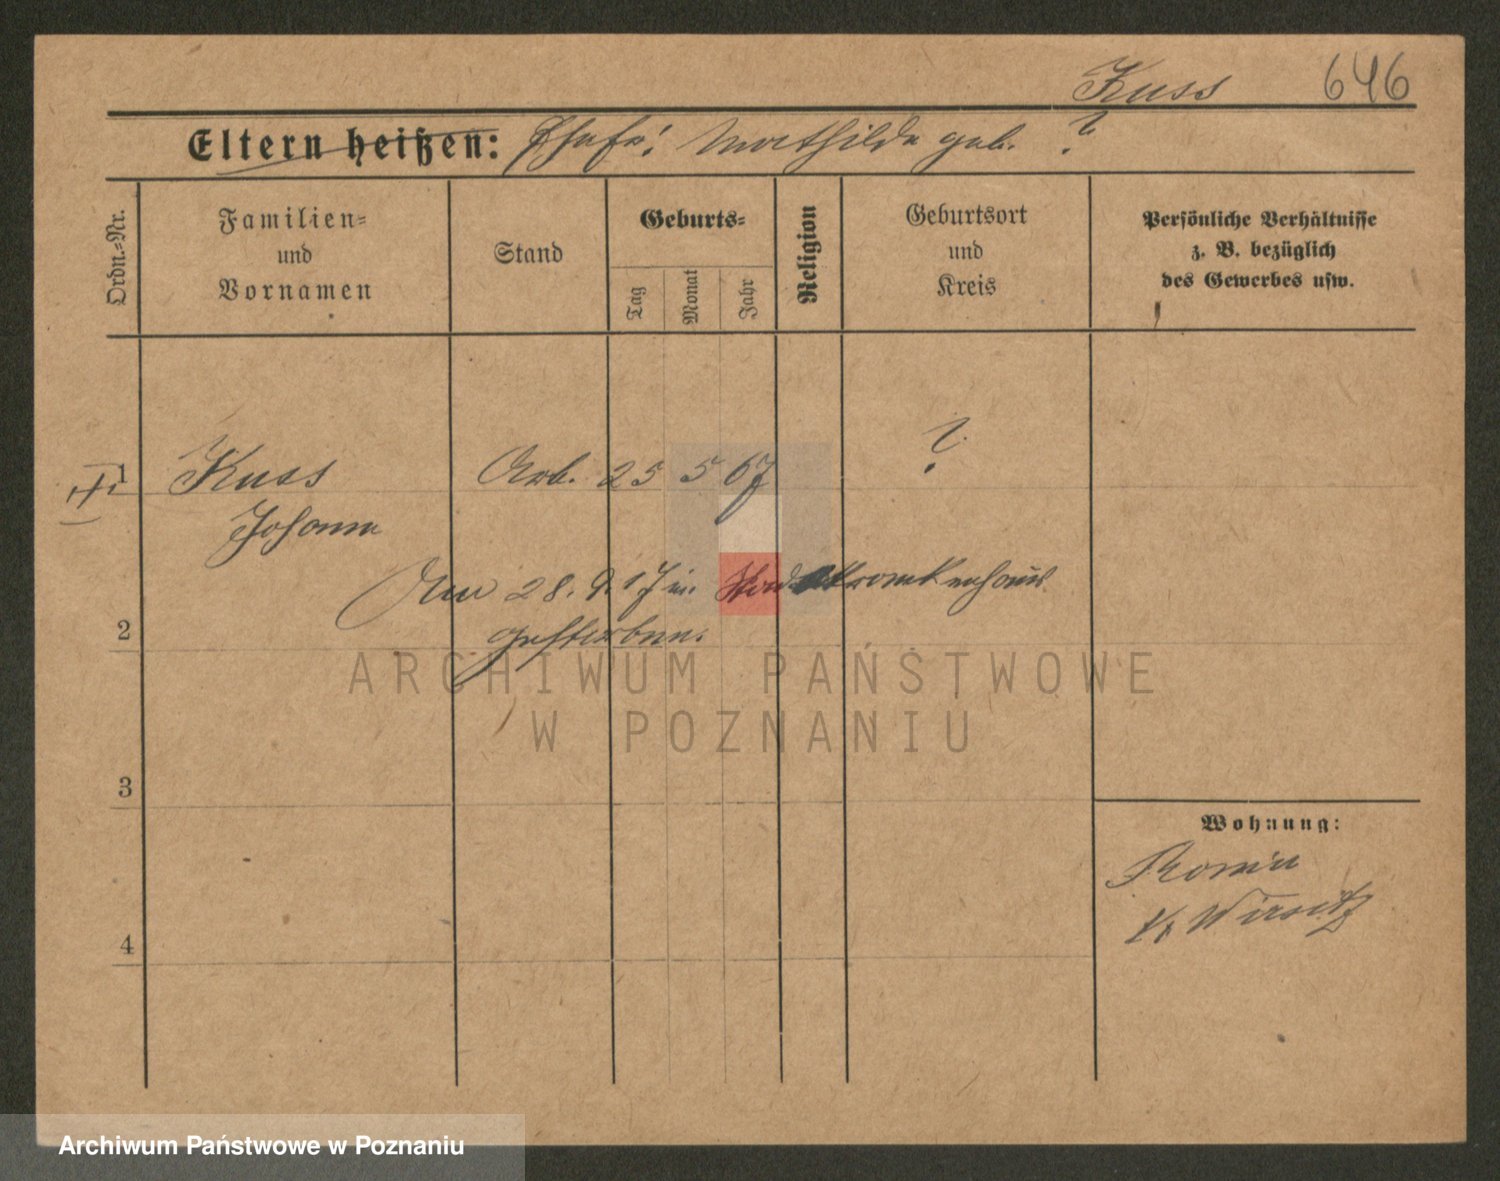 Kuss 646
Eltern heißen: Ehefr: Mathilde geb. ?
Ordn.-Nr.
Familien-
und
Vornamen
Stand
Geburts-
Tag
Monat
Jahr
Religion
Geburtsort
und
Kreis
Persönliche Verhältnisse
z. B. bezüglich
des Gewerbes usw.
1 Kuss Arb. 25 5 67 ?
Johann
Am 28. 9. 17 im Stadtkrankenhaus
2 gestorben.
ARCHIWUM PAŃSTWOWE
W POZNANIU
3
Wohnung:
Kr. Wirsitz
4
Archiwum Państwowe w Poznaniu